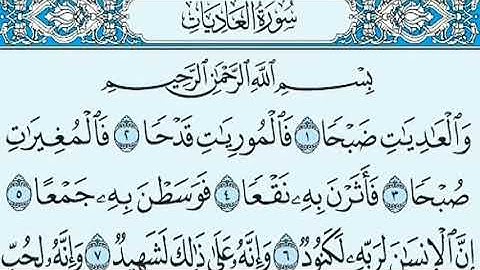 سُورَةُ الْعَادِيَات
بِسْمِ اللَّهِ الرَّحْمَٰنِ الرَّحِيمِ
وَالْعَادِيَاتِ ضَبْحًا ١ فَالْمُورِيَاتِ قَدْحًا ٢ فَالْمُغِيرَاتِ
صُبْحًا ٣ فَأَثَرْنَ بِهِ نَقْعًا ٤ فَوَسَطْنَ بِهِ جَمْعًا ٥
إِنَّ الْإِنسَانَ لِرَبِّهِ لَكَنُودٌ ٦ وَإِنَّهُ عَلَىٰ ذَٰلِكَ لَشَهِيدٌ ٧ وَإِنَّهُ لِحُبِّ